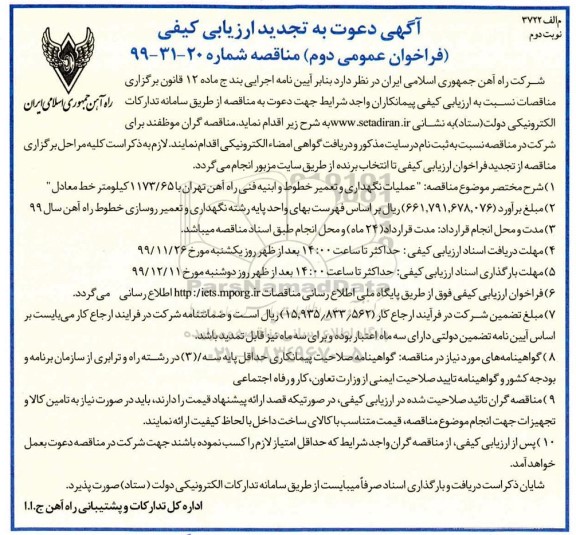 م الف ۳۷۲۲
نوبت دوم
آگهی دعوت به تجدید ارزیابی کیفی
(فراخوان عمومی دوم) مناقصه شماره ۲۰-۳۱-۹۹
راه آهن جمهوری اسلامی ایران
شرکت راه آهن جمهوری اسلامی ایران در نظر دارد بنابر آیین نامه اجرایی بند ج ماده ۱۲ قانون برگزاری
مناقصات نسبت به ارزیابی کیفی پیمانکاران واجد شرایط جهت دعوت به مناقصه از طریق سامانه تدارکات
الکترونیکی دولت (ستاد) به نشانی www.setadiran.ir به شرح زیر اقدام نماید. مناقصه گران موظفند برای
شرکت در مناقصه نسبت به ثبت نام در سایت مذکور و دریافت گواهی امضاء الکترونیکی اقدام نمایند. لازم به ذکر است کلیه مراحل برگزاری
مناقصه از تجدید فراخوان ارزیابی کیفی تا انتخاب برنده از طریق سایت مزبور انجام می‌گردد.
۱) شرح مختصر موضوع مناقصه: "عملیات نگهداری و تعمیر خطوط و ابنیه فنی راه آهن تهران با ۱۱۷۳/۶۵ کیلومتر خط معادل"
۲) مبلغ برآورد (۶۶۱,۷۹۱,۶۷۸,۰۷۶) ریال بر اساس فهرست بهای واحد پایه رشته نگهداری و تعمیر روسازی خطوط راه آهن سال ۹۹
۳) مدت و محل انجام قرارداد: مدت قرارداد (۲۴ ماه) و محل انجام طبق اسناد مناقصه میباشد.
۴) مهلت دریافت اسناد ارزیابی کیفی: حداکثر تا ساعت ۱۴:۰۰ بعد از ظهر روز یکشنبه مورخ ۹۹/۱۱/۲۶
۵) مهلت بارگذاری اسناد ارزیابی کیفی: حداکثر تا ساعت ۱۴:۰۰ بعد از ظهر روز دوشنبه مورخ ۹۹/۱۲/۱۱
۶) فراخوان ارزیابی کیفی فوق از طریق پایگاه ملی اطلاع رسانی مناقصات http://iets.mporg.ir اطلاع رسانی می‌گردد.
۷) مبلغ تضمین شرکت در فرآیند ارجاع کار (۱۵,۹۳۵,۸۳۳,۵۶۲) ریال است و ضمانتنامه شرکت در فرایند ارجاع کار می‌بایست بر
اساس آیین نامه تضمین دولتی دارای سه ماه اعتبار بوده و برای سه ماه نیز قابل تمدید باشد.
۸) گواهینامه‌های مورد نیاز در مناقصه: گواهینامه صلاحیت پیمانکاری حداقل پایه سه/(۳) در رشته راه و ترابری از سازمان برنامه و
بودجه کشور و گواهینامه تایید صلاحیت ایمنی از وزارت تعاون، کار و رفاه اجتماعی
۹) مناقصه گران تائید صلاحیت شده در ارزیابی کیفی، در صورتیکه قصد ارائه پیشنهاد قیمت را دارند، باید در صورت نیاز به تامین کالا و
تجهیزات جهت انجام موضوع مناقصه، قیمت متناسب با کالای ساخت داخل با لحاظ کیفیت ارائه نمایند.
۱۰) پس از ارزیابی کیفی، از مناقصه گران واجد شرایط که حداقل امتیاز لازم را کسب نموده باشند جهت شرکت در مناقصه دعوت بعمل
خواهد آمد.
شایان ذکر است دریافت و بارگذاری اسناد صرفاً میبایست از طریق سامانه تدارکات الکترونیکی دولت (ستاد) صورت پذیرد.
اداره کل تدارکات و پشتیبانی راه آهن ج.ا.ا
ParsNamadData